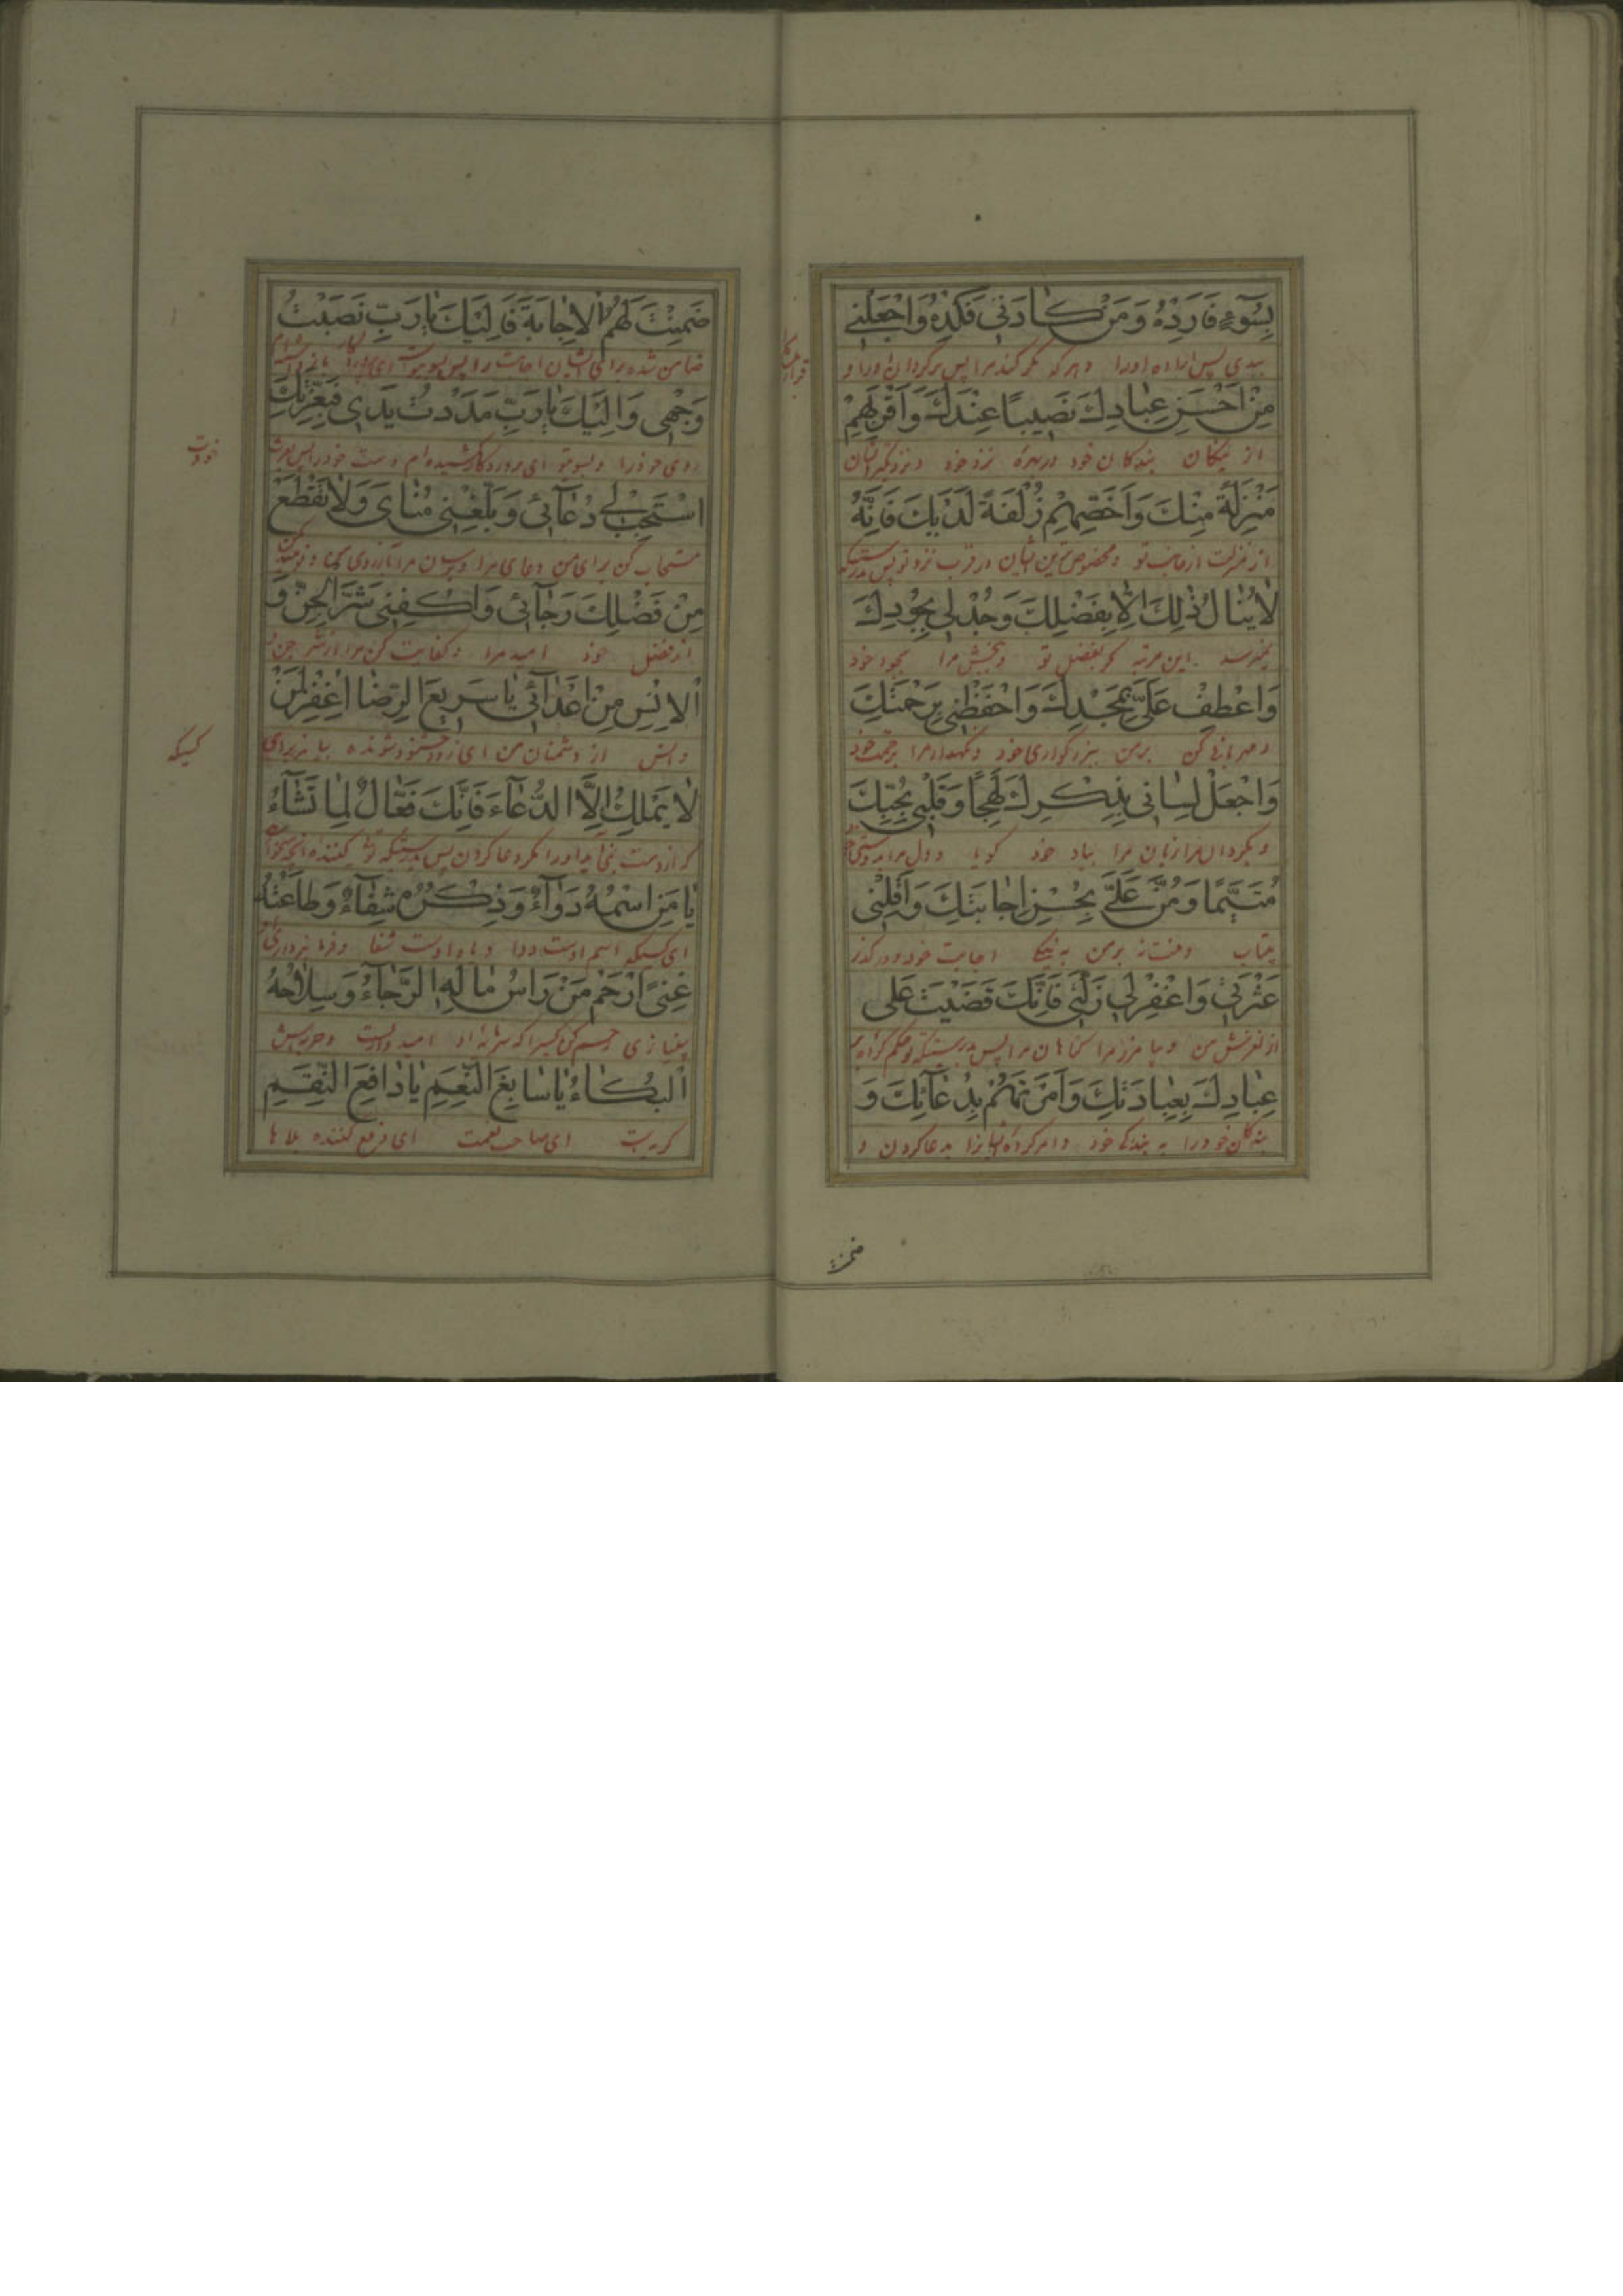 بِسُوٓءٍ فَاَرِدْهُ وَمَنْ كٰادَنى فَكِدْهُ وَاجْعَلْنى
ببدی پس اراده او را و هر که مکر کند مرا پس برگردان او را و
مِنْ اَحْسَنِ عِبٰادِكَ نَصيبًا عِنْدَكَ وَاَقْرَبِهِمْ
از نیکان بندگان خود در بهره نزد خود و نزدیکترایشان
مَنْزِلَةً مِنْكَ وَاَخَصِّهِمْ زُلْفَةً لَدَيْكَ فَاِنَّهُ
از منزلت از جانب تو و مخصوص‌ترین ایشان در قرب نزد تو پس بدرستیکه
لاٰ يُنٰالُ ذٰلِكَ اِلّاٰ بِفَضْلِكَ وَجُدْ لى بِجُودِكَ
نمیرسد باین مرتبه مگر بفضل تو و ببخش مرا بجود خود
وَاعْطِفْ عَلَىَّ بِمَجْدِكَ وَاحْفَظْنى بِرَحْمَتِكَ
و مهربانی کن بر من ببزرگواری خود و نگهدار مرا برحمت خود
وَاجْعَلْ لِسٰانى بِذِكْرِكَ لَهِجًا وَقَلْبى بِحُبِّكَ
و بگردان مرا زبان مرا بیاد خود گویا و دل مرا بدوستی خود
مُتَيَّمًا وَمُنَّ عَلَىَّ بِحُسْنِ اِجٰابَتِكَ وَاَقِلْنى
بیتاب و منت نه بر من به نیکی اجابت خود و در گذر
عَثْرَتى وَاغْفِرْ لى زَلَّتى فَاِنَّكَ قَضَيْتَ عَلى
از لغزش من و بیامرز مرا گناهان مرا پس بدرستیکه تو حکم کرده بر
عِبٰادِكَ بِعِبٰادَتِكَ وَاَمَرْتَهُمْ بِدُعٰآئِكَ وَ
بندگان خود را به بندگی خود و امر کرده ایشانرا بدعا کردن و
ضمنت
ضَمِنْتَ لَهُمُ الْاِجٰابَةَ فَاِلَيْكَ يٰا رَبِّ نَصَبْتُ
ضامن شده برای ایشان اجابت را پس بسوی تو ای پروردگار
وَجْهى وَاِلَيْكَ يٰا رَبِّ مَدَدْتُ يَدى فَبِعِزَّتِكَ
روی خود را و بسوی تو ای پروردگار کشیده‌ام دست خود را پس بعزت
خودت
اسْتَجِبْ لى دُعٰآئى وَبَلِّغْنى مُنٰاىَ وَلاٰ تَقْطَعْ
مستجاب کن برای من دعای مرا و برسان مرا بآرزوی و نومید مکن
مِنْ فَضْلِكَ رَجٰآئى وَاكْفِنى شَرَّ الْجِنِّ وَ
از فضل خود امید مرا و کفایت کن مرا از شر جن
الْاِنْسِ مِنْ اَعْدٰآئى يٰا سَريعَ الرِّضٰا اِغْفِرْ لِمَنْ
و انس از دشمنان من ای زود خشنود شونده بیامرز برای
کسیکه
لاٰ يَمْلِكُ اِلَّا الدُّعٰآءَ فَاِنَّكَ فَعّٰالٌ لِمٰا تَشٰآءُ
که از دست نمی‌آید او را مگر دعا کردن پس بدرستیکه تو کننده آنچه میخواهی
يٰا مَنِ اسْمُهُ دَوٰآءٌ وَذِكْرُهُ شِفٰآءٌ وَطٰاعَتُهُ
ای کسیکه اسم اوست دوا و یاد اوست شفا و فرمانبرداری
غِنىً اِرْحَمْ مَنْ رَاْسُ مٰالِهِ الرَّجٰآءُ وَسِلاٰحُهُ
بینیازی رحم کن کسیرا که سرمایه او امید و حربه‌اش
الْبُكٰآءُ يٰا سٰابِغَ النِّعَمِ يٰا دٰافِعَ النِّقَمِ
گریه است ای صاحب نعمت ای دفع کننده بلاها